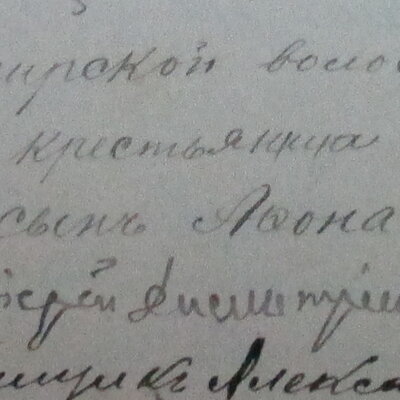 ирской воло
крестьянина
сынъ Леона
ерей Димитри
щикъ Алекса